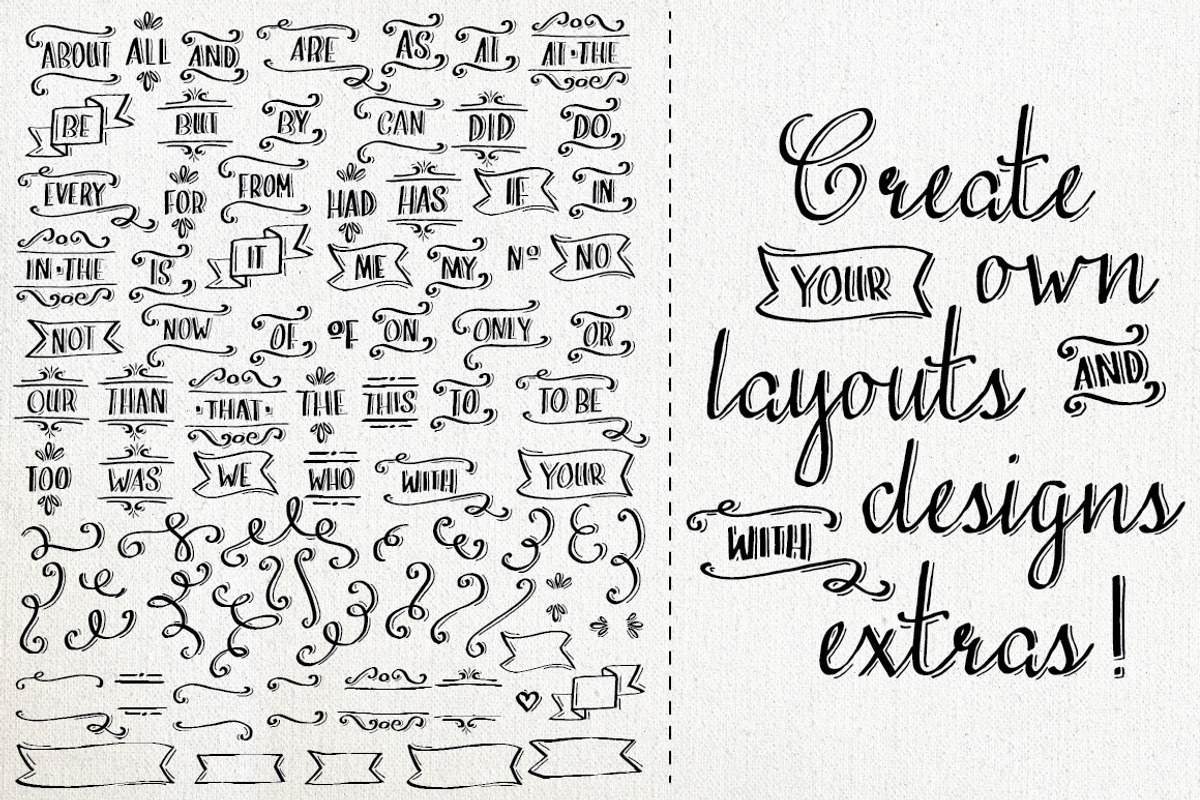 ABOUT ALL AND ARE AS AT AT•THE
BE BUT BY CAN DID DO
EVERY FOR FROM HAD HAS IF IN
IN•THE IS IT ME MY Nº NO
NOT NOW OF ºF ON ONLY OR
OUR THAN •THAT• THE THIS TO TO BE
TOO WAS WE WHO WITH YOUR
Create
YOUR own
layouts AND
designs
WITH
extras!